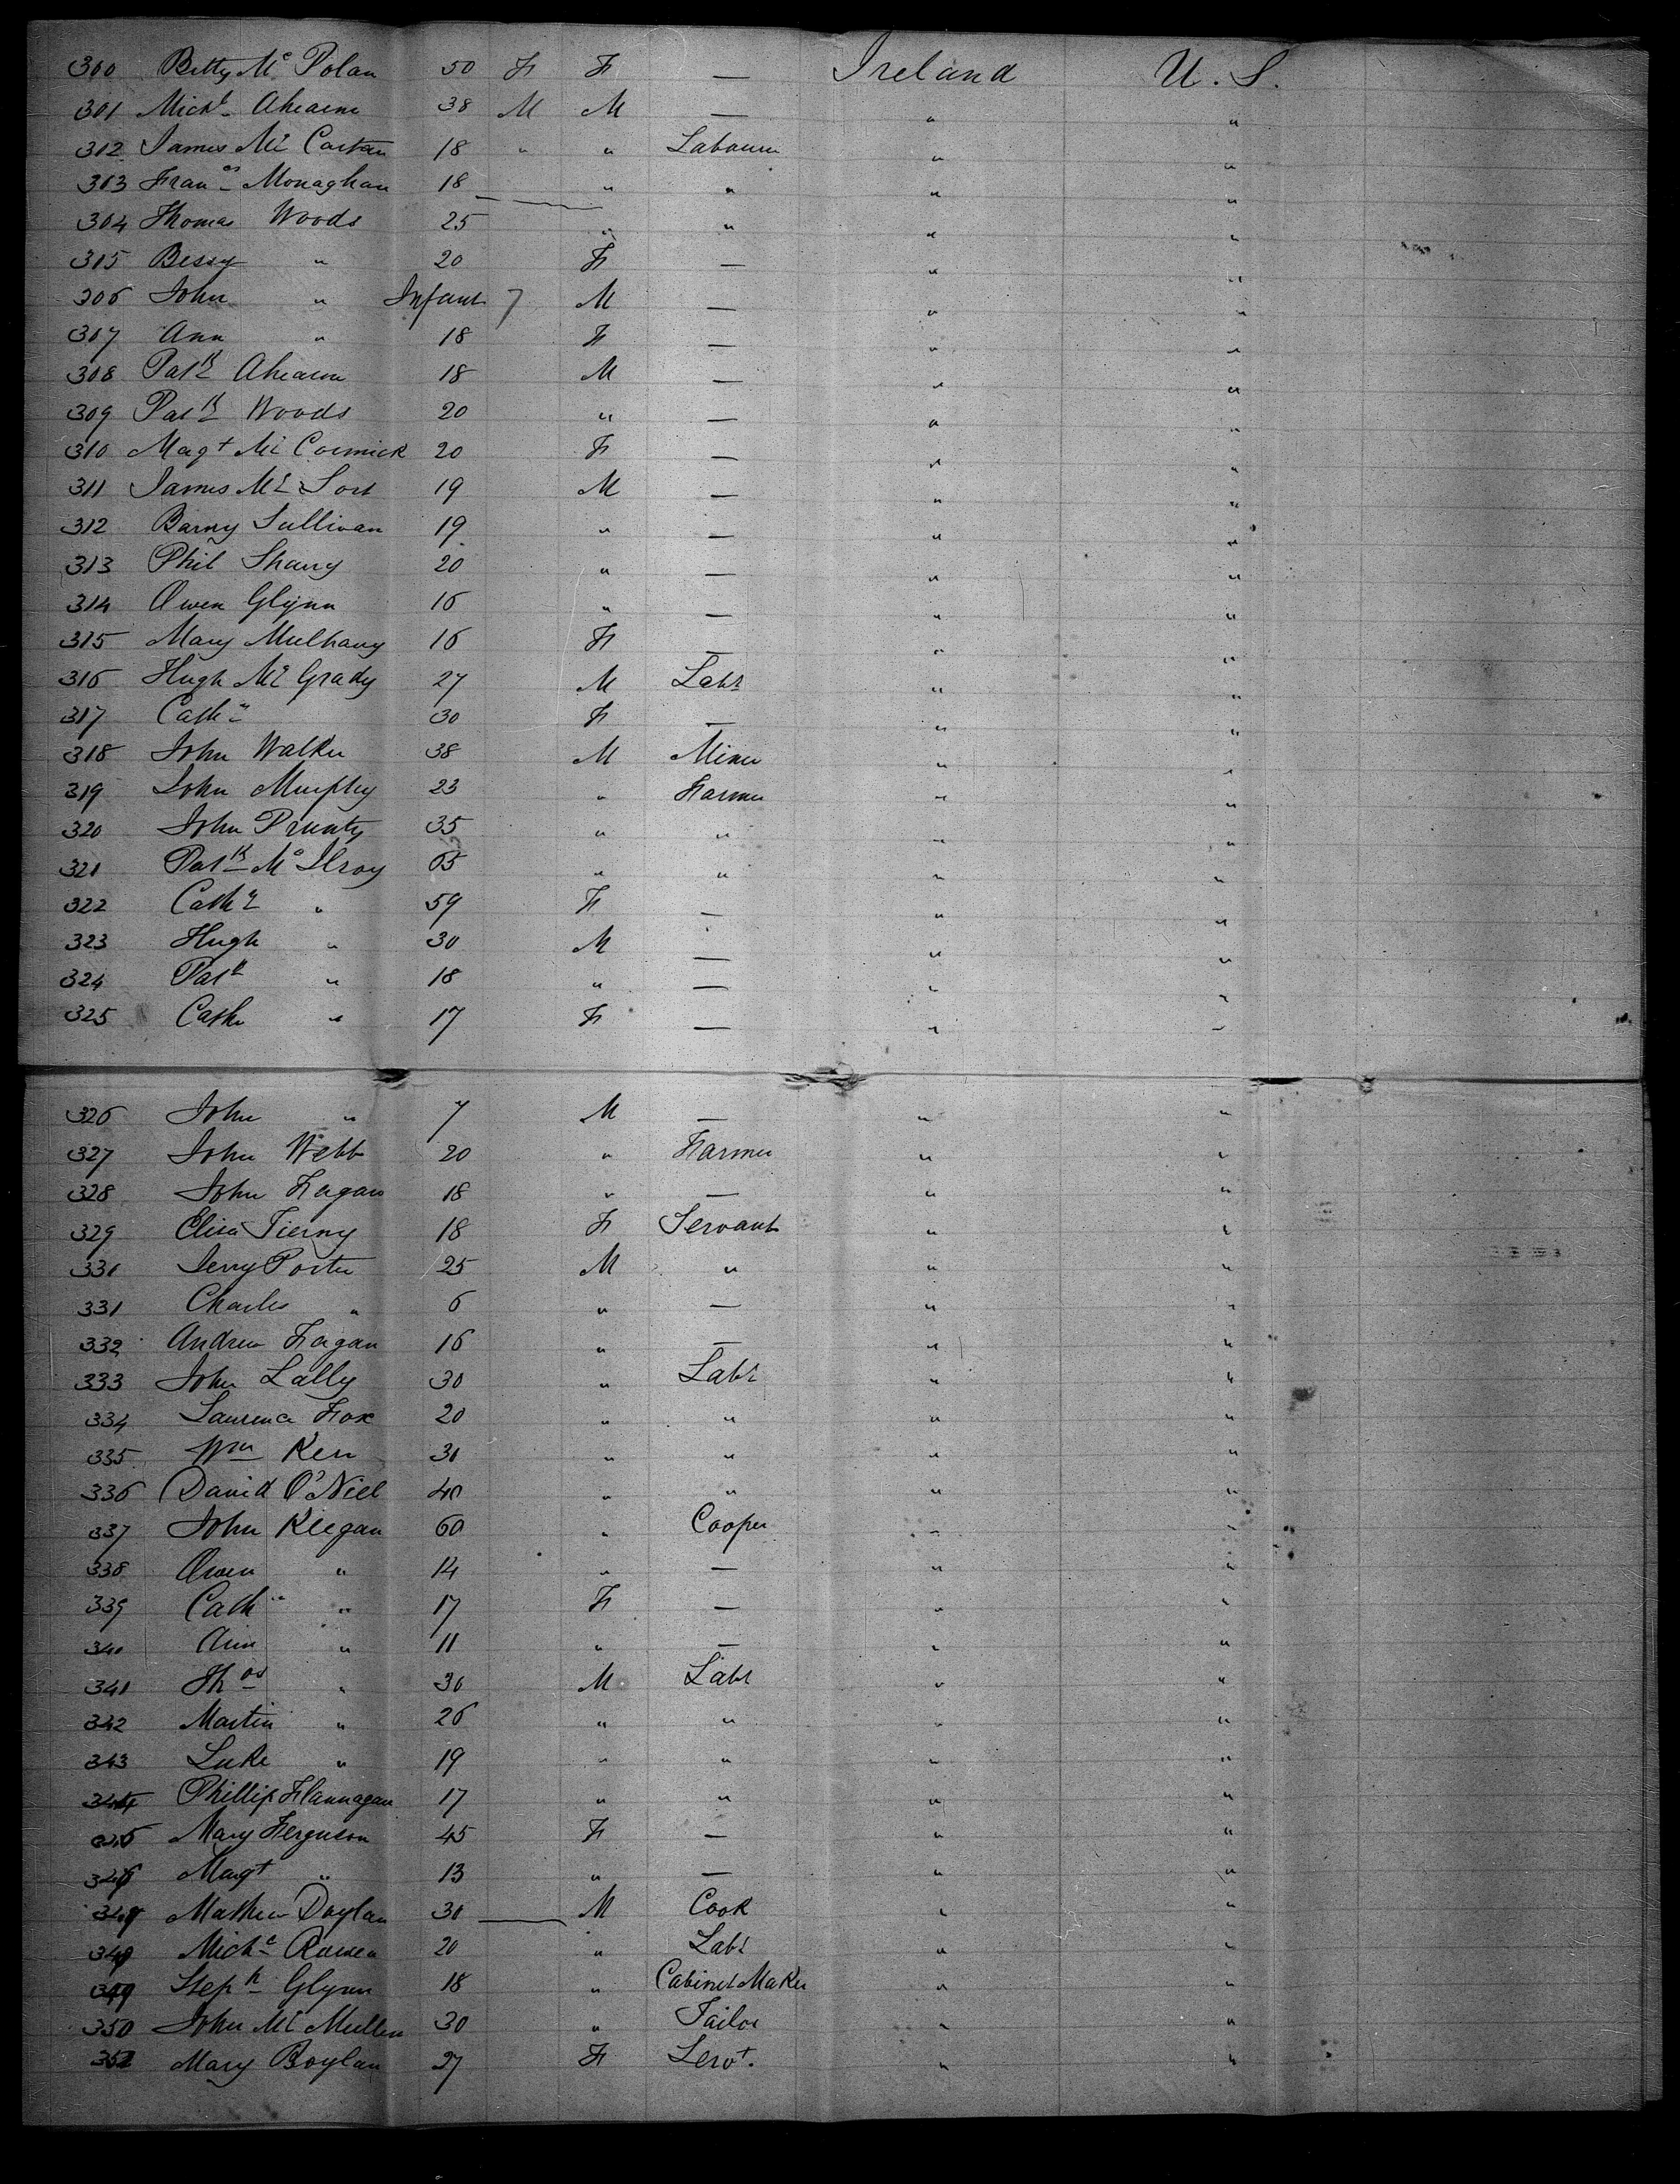 300 Betty Mc Polan 50 F F — Ireland U. S.
301 Michl Ahearne 38 M M — " "
302 James Mc Cartan 18 " " Labourer " "
303 Frans Monaghan 18 " " " "
304 Thomas Woods 25 " " " "
305 Bessy " 20 F — " "
306 John " Infant 7 M — " "
307 Ann " 18 F — " "
308 Patk Ahearn 18 M — " "
309 Patk Woods 20 " — " "
310 Magt Mc Cormick 20 F — " "
311 James Mc 19 M — " "
312 Barny Sullivan 19 " — " "
313 Phil Sharry 20 " — " "
314 Owen Glynn 16 " — " "
315 Mary Mulhany 16 F — " "
316 Hugh Mc Grady 27 M Labr " "
317 Cath " 30 F — " "
318 John Walker 38 M Miner " "
319 John Murphy 23 " Farmer " "
320 John Prunty 35 " " " "
321 Patk Mc Ilroy 65 " " " "
322 Cathe " 59 F — " "
323 Hugh " 30 M — " "
324 Patk " 18 " — " "
325 Cathe " 17 F — " "
326 John " 7 M — " "
327 John Webb 20 " Farmer " "
328 John Fagan 18 " — " "
329 Eliza Tierny 18 F Servant " "
330 Jerry Porter 25 M " " "
331 Charles " 6 " — " "
332 Andrew Fagan 16 " — " "
333 John Lally 30 " Labr " "
334 Laurence Fox 20 " " " "
335 Wm Kerr 30 " " " "
336 David O'Niel 40 " " " "
337 John Keegan 60 " Cooper " "
338 Owen " 14 " — " "
339 Cath " 17 F — " "
340 Ann " 11 " — " "
341 Thos " 30 M Labr " "
342 Martin " 26 " " " "
343 Luke " 19 " " " "
344 Phillip Flannagan 17 " " " "
345 Mary Ferguson 45 F — " "
346 Magt " 13 " — " "
347 Mathew Doylan 30 M Cook " "
348 Michl 20 " Labr " "
349 Steph Glynn 18 " Cabinet Maker " "
350 John Mc Mullen 30 " Tailor " "
Mary Boylan 27 F Servt. " "